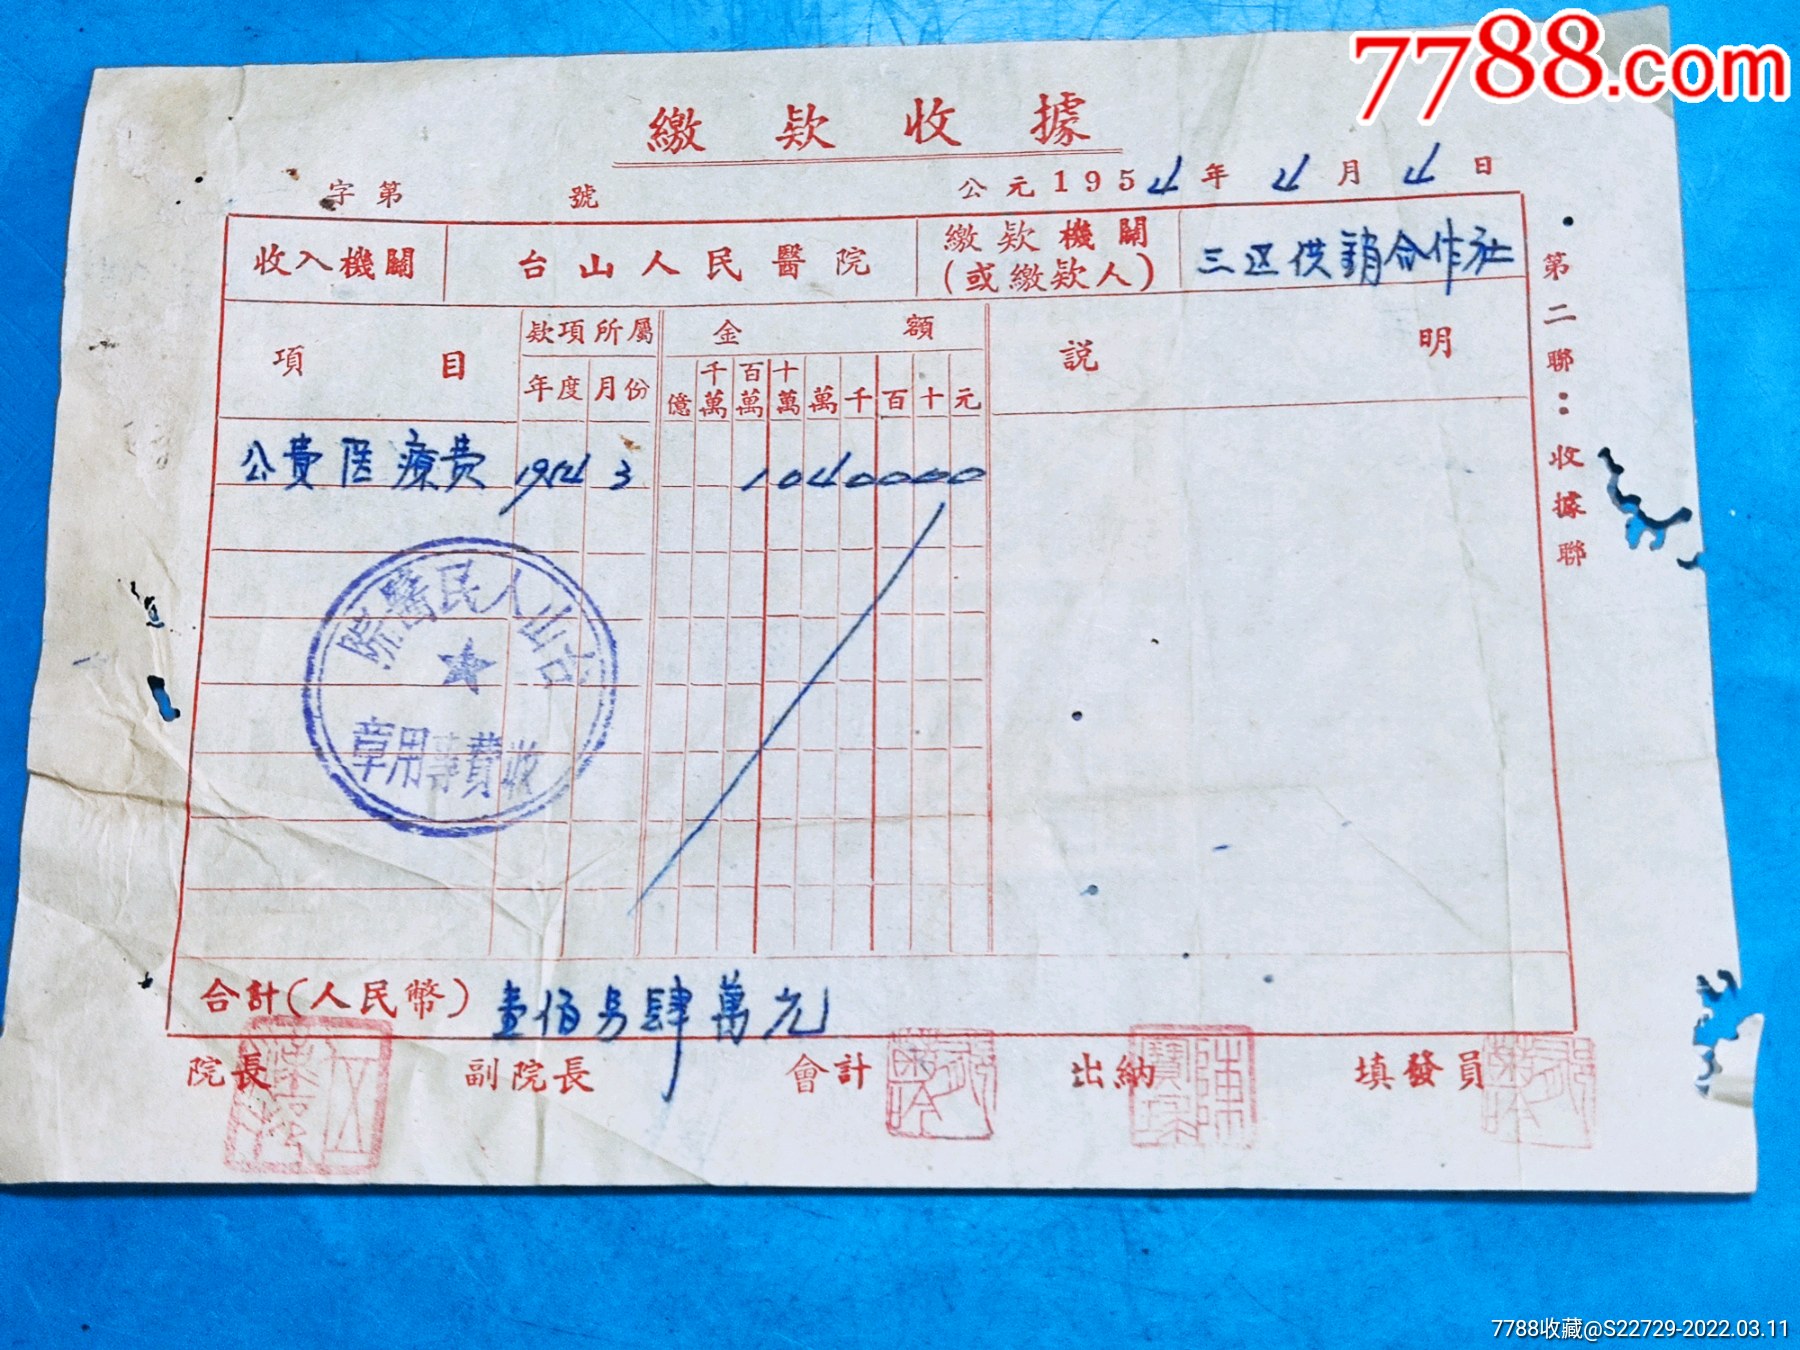 7788.com
繳款收據
字第 號 公元1954年4月4日
收入機關 台山人民醫院 繳款機關(或繳款人) 三区供銷合作社
項目 款項所屬 金額 説明
年度 月份 億 千萬 百萬 十萬 萬 千 百 十 元
公費医療費 1954 3 1040000
台山人民醫院
收費專用章
合計(人民幣) 壹佰另肆萬元
院長 副院長 會計 出納 填發員
第二聯：收據聯
7788收藏@S22729-2022.03.11